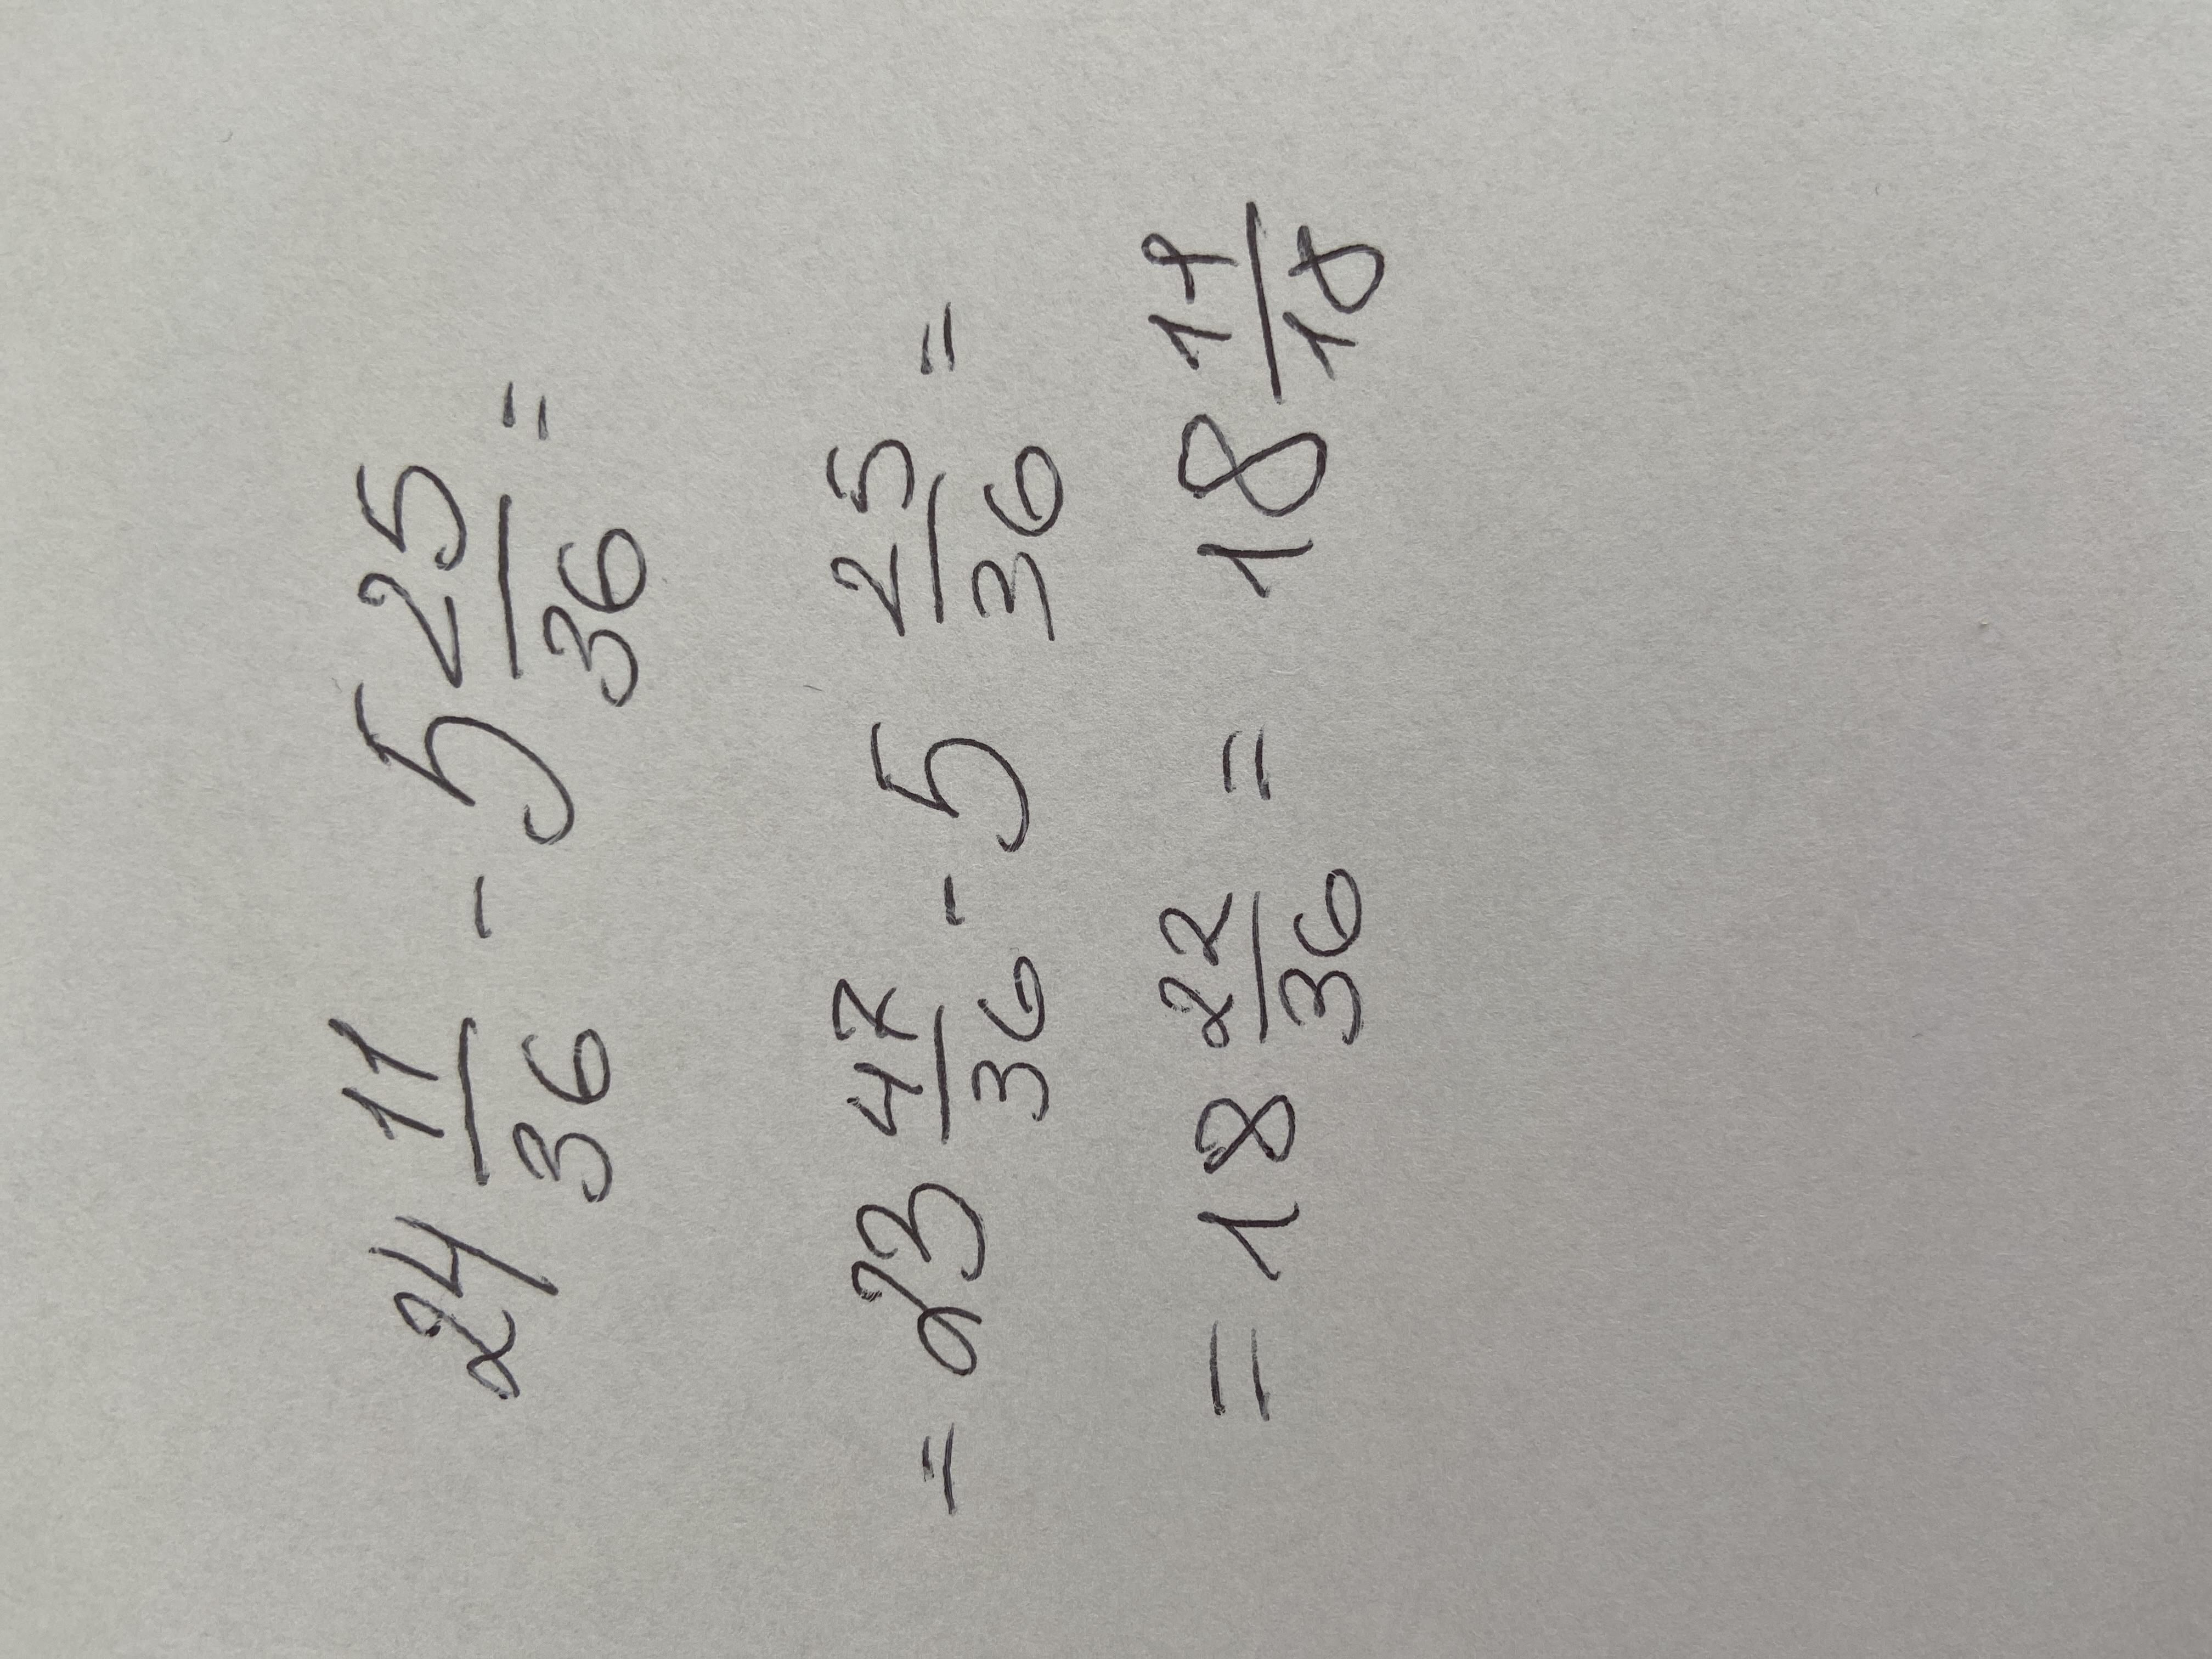 24 11/36 - 5 25/36 =
= 23 47/36 - 5 25/36 =
= 18 22/36 = 18 11/18